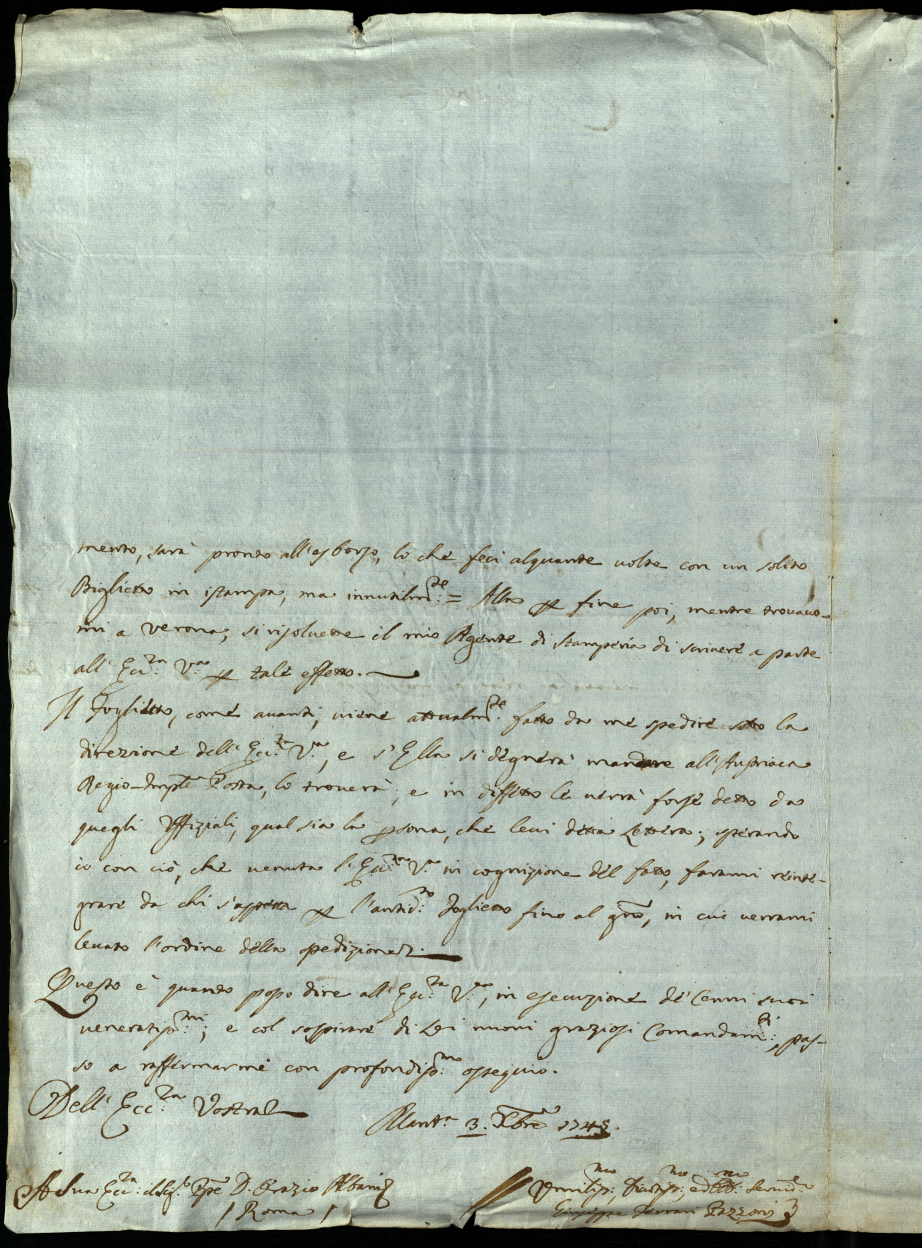 mento, sarà pronto all'esborso, lo che feci alquante volte con un solito
Biglietto in istampa, ma innutilm.te = Alla per fine poi, mentre trovavo-
mi a Verona, si risoluette il mio Agente di Stamperia di scriuere a parte
all' Ecc.za V.ra per tale effetto.
Il Foglietto, come auanti, uiene attualm.te fatto da me spedire sotto la
direzione dell' Ecc.za V.ra, e s'Ella si degnerà mandare all'Austriaca
Regio-Imp.le Posta, lo trouerà; e in diffetto le uerrà forse detto da
quegli Uffiziali, qual sia la persona, che leui detta Lettera; sperando
io con ciò, che uenuta l'Ecc.za V.ra in cognizione del fatto, farami reinte-
grare da chi s'aspetta per l'antid.to Foglietto fino al gno, in cui uerrami
leuato l'ordine della spedizione.
Questo è quanto posso dire all' Ecc.za V.ra, in esecuzione de' Cenni suoi
ueneratiss.mi; e col sospirare di Lei nuoui graziosi Comandam.ti, pas-
so a raffermarmi con profondiss.mo ossequio.
Dell' Ecc.za Vostra
Mant.a 3. Xbre 1745.
A Sua Ecc.za il Sig.r Ppe D. Orazio Albani
/ Roma /
Umiliss.mo Deuotiss.mo ed Obb.mo Seru.re
Giuseppe Ferrari Pazzoni